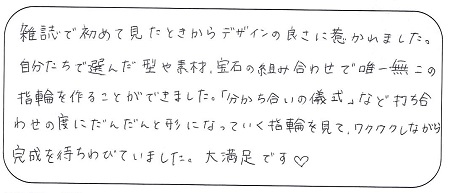 雑誌で初めて見たときからデザインの良さに惹かれました。
自分たちで選んだ型や素材、宝石の組み合わせで唯一無この
指輪を作ることができました。「分かち合いの儀式」など打ち合
わせの度にだんだんと形になっていく指輪を見て、ワクワクしながら
完成を待ちわびていました。大満足です♡